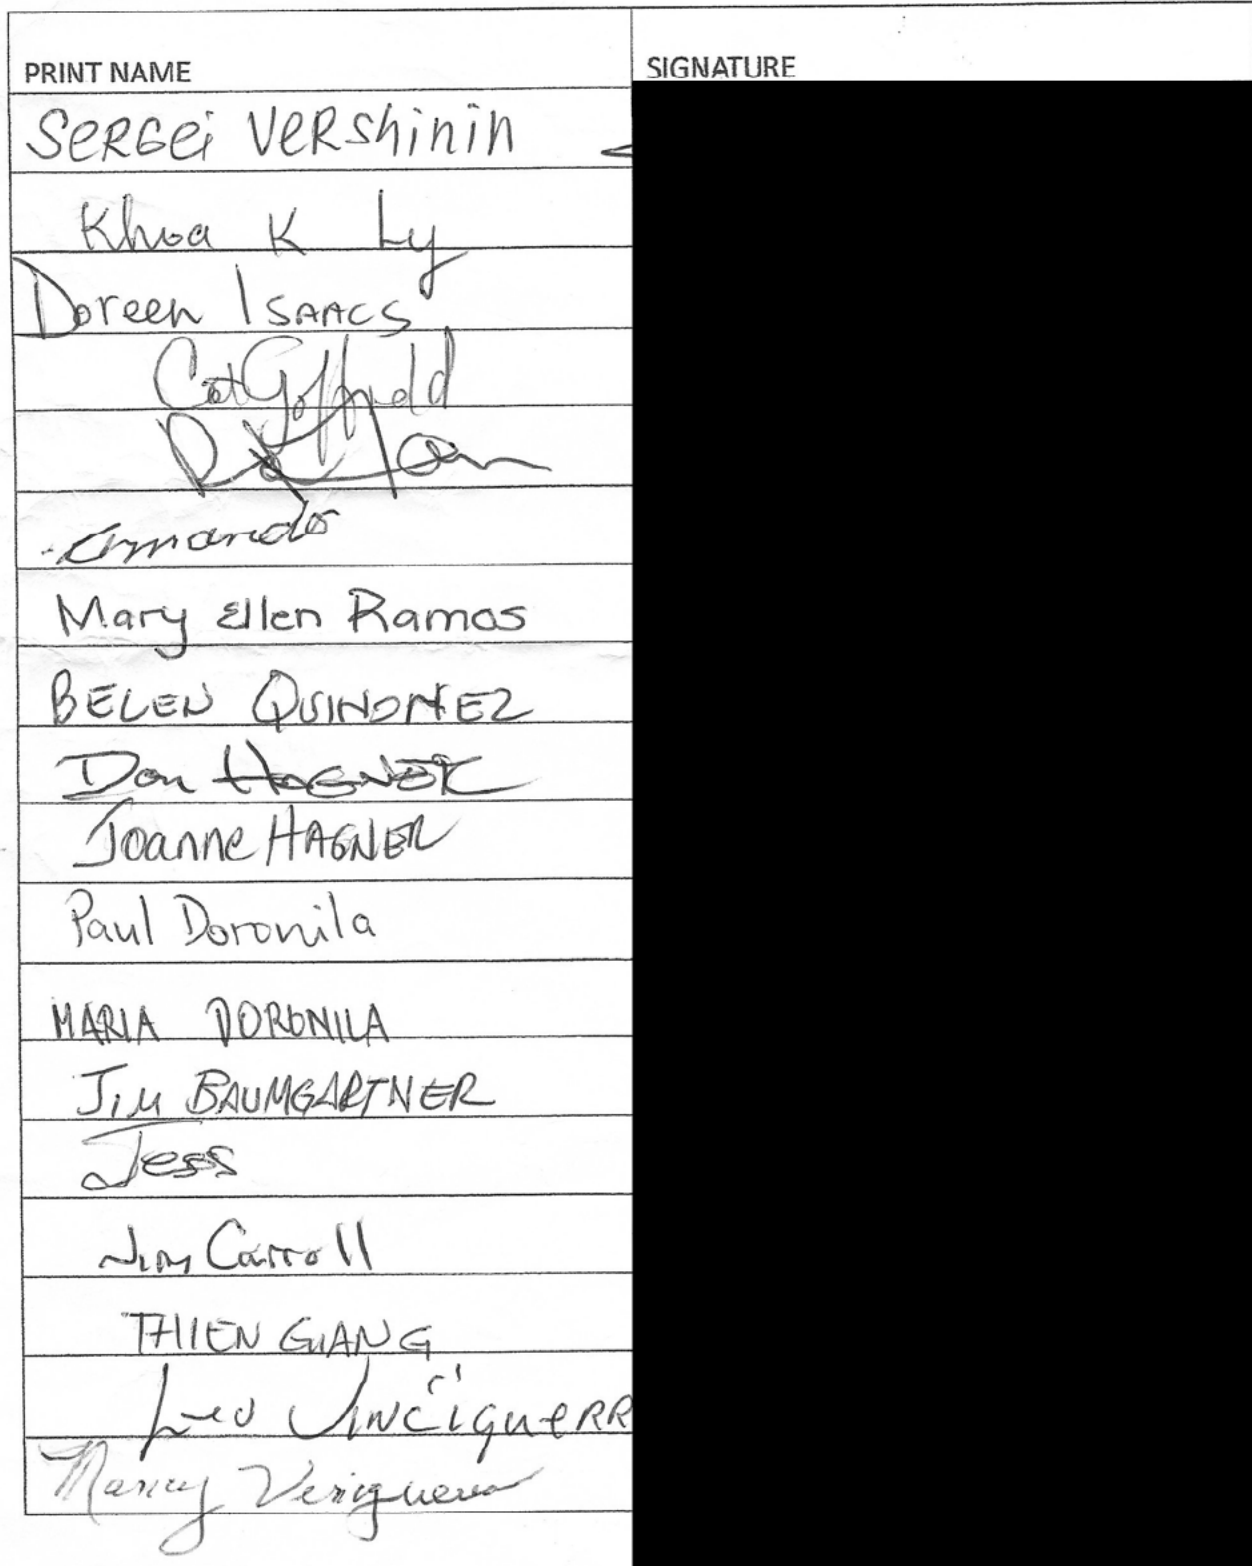 PRINT NAME
SIGNATURE
SERGei VeRShinin
Khoa K Ly
Doreen ISAACS
Cat
Armando
Mary Ellen Ramos
BELEN QUINONEZ
Don HAGNER
Joanne HAGNER
Paul Doronila
MARIA DORONILA
JIM BAUMGARTNER
Jess
Jim Carroll
THIEN GIANG
Leo VINCIGUERR
Nancy Vinciguerra